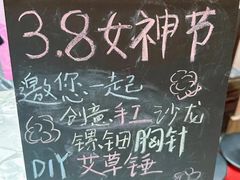 3.8女神节
邀您一起
创意手工沙龙
镙钿胸针
DIY 艾草锤